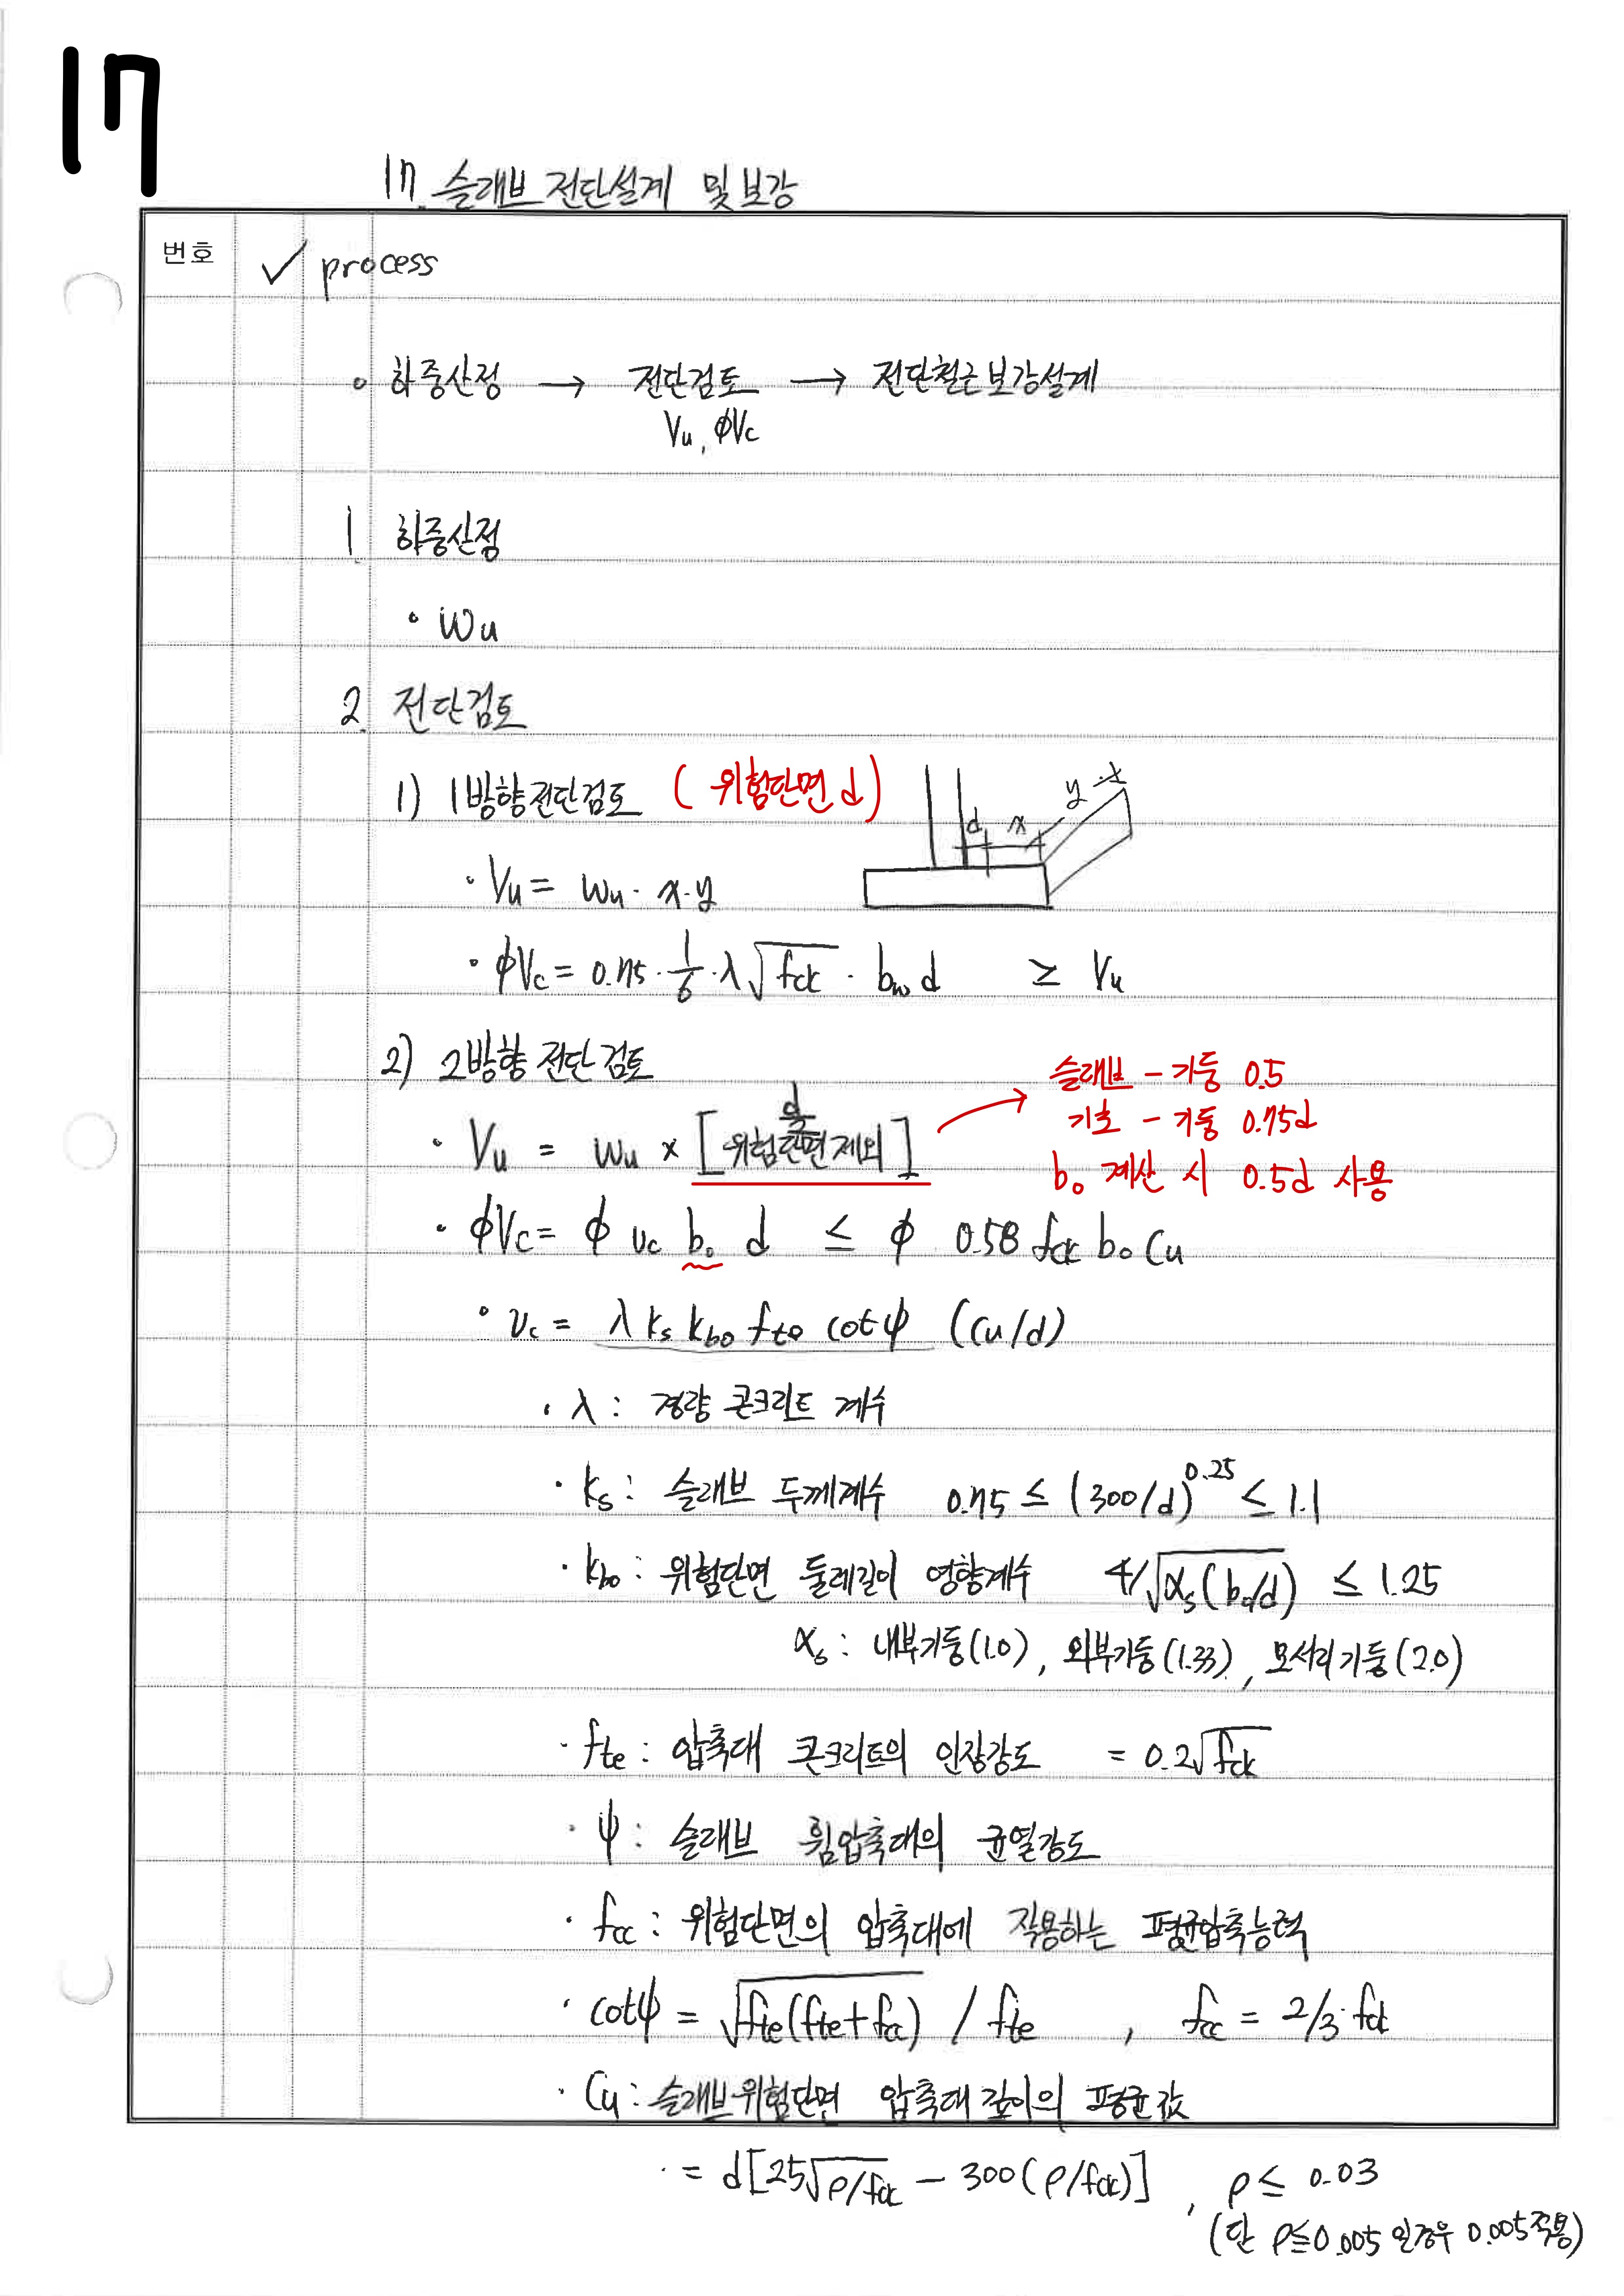 17
17. 슬래브 전단설계 및 보강
번호
✓ process
∘ 하중산정 → 전단검토 → 전단철근 보강설계
Vu, ϕVc
1. 하중산정
• Wu
2. 전단검토
1) 1방향 전단검토 ( 위험단면 d)
d x y
• Vu = Wu · x·y
• ϕVc = 0.75 · 1/6 · λ√fck · bw d ≥ Vu
2) 2방향 전단검토
슬래브 - 기둥 0.5
기초 - 기둥 0.75d
b₀ 계산 시 0.5d 사용
• Vu = Wu × [위험단면 제외]
• ϕVc = ϕ vc b₀ d ≤ ϕ 0.58 fck b₀ Cu
• vc = λ ks kbo fte cotψ (Cu/d)
• λ : 경량 콘크리트 계수
• ks : 슬래브 두께계수 0.75 ≤ (300/d)^0.25 ≤ 1.1
• kbo : 위험단면 둘레길이 영향계수 4/√αs(b₀/d) ≤ 1.25
αs : 내부기둥(1.0), 외부기둥(1.33), 모서리기둥(2.0)
• fte : 압축대 콘크리트의 인장강도 = 0.2√fck
• ψ : 슬래브 휨압축대의 균열강도
• fcc : 위험단면의 압축대에 작용하는 평균압축능력
• cotψ = √fte(fte+fcc) / fte , fcc = 2/3·fck
• Cu : 슬래브 위험단면 압축대 깊이의 평균값
• = d[25√ρ/fck - 300(ρ/fck)] , ρ ≤ 0.03
(단 ρ≤0.005 일경우 0.005적용)